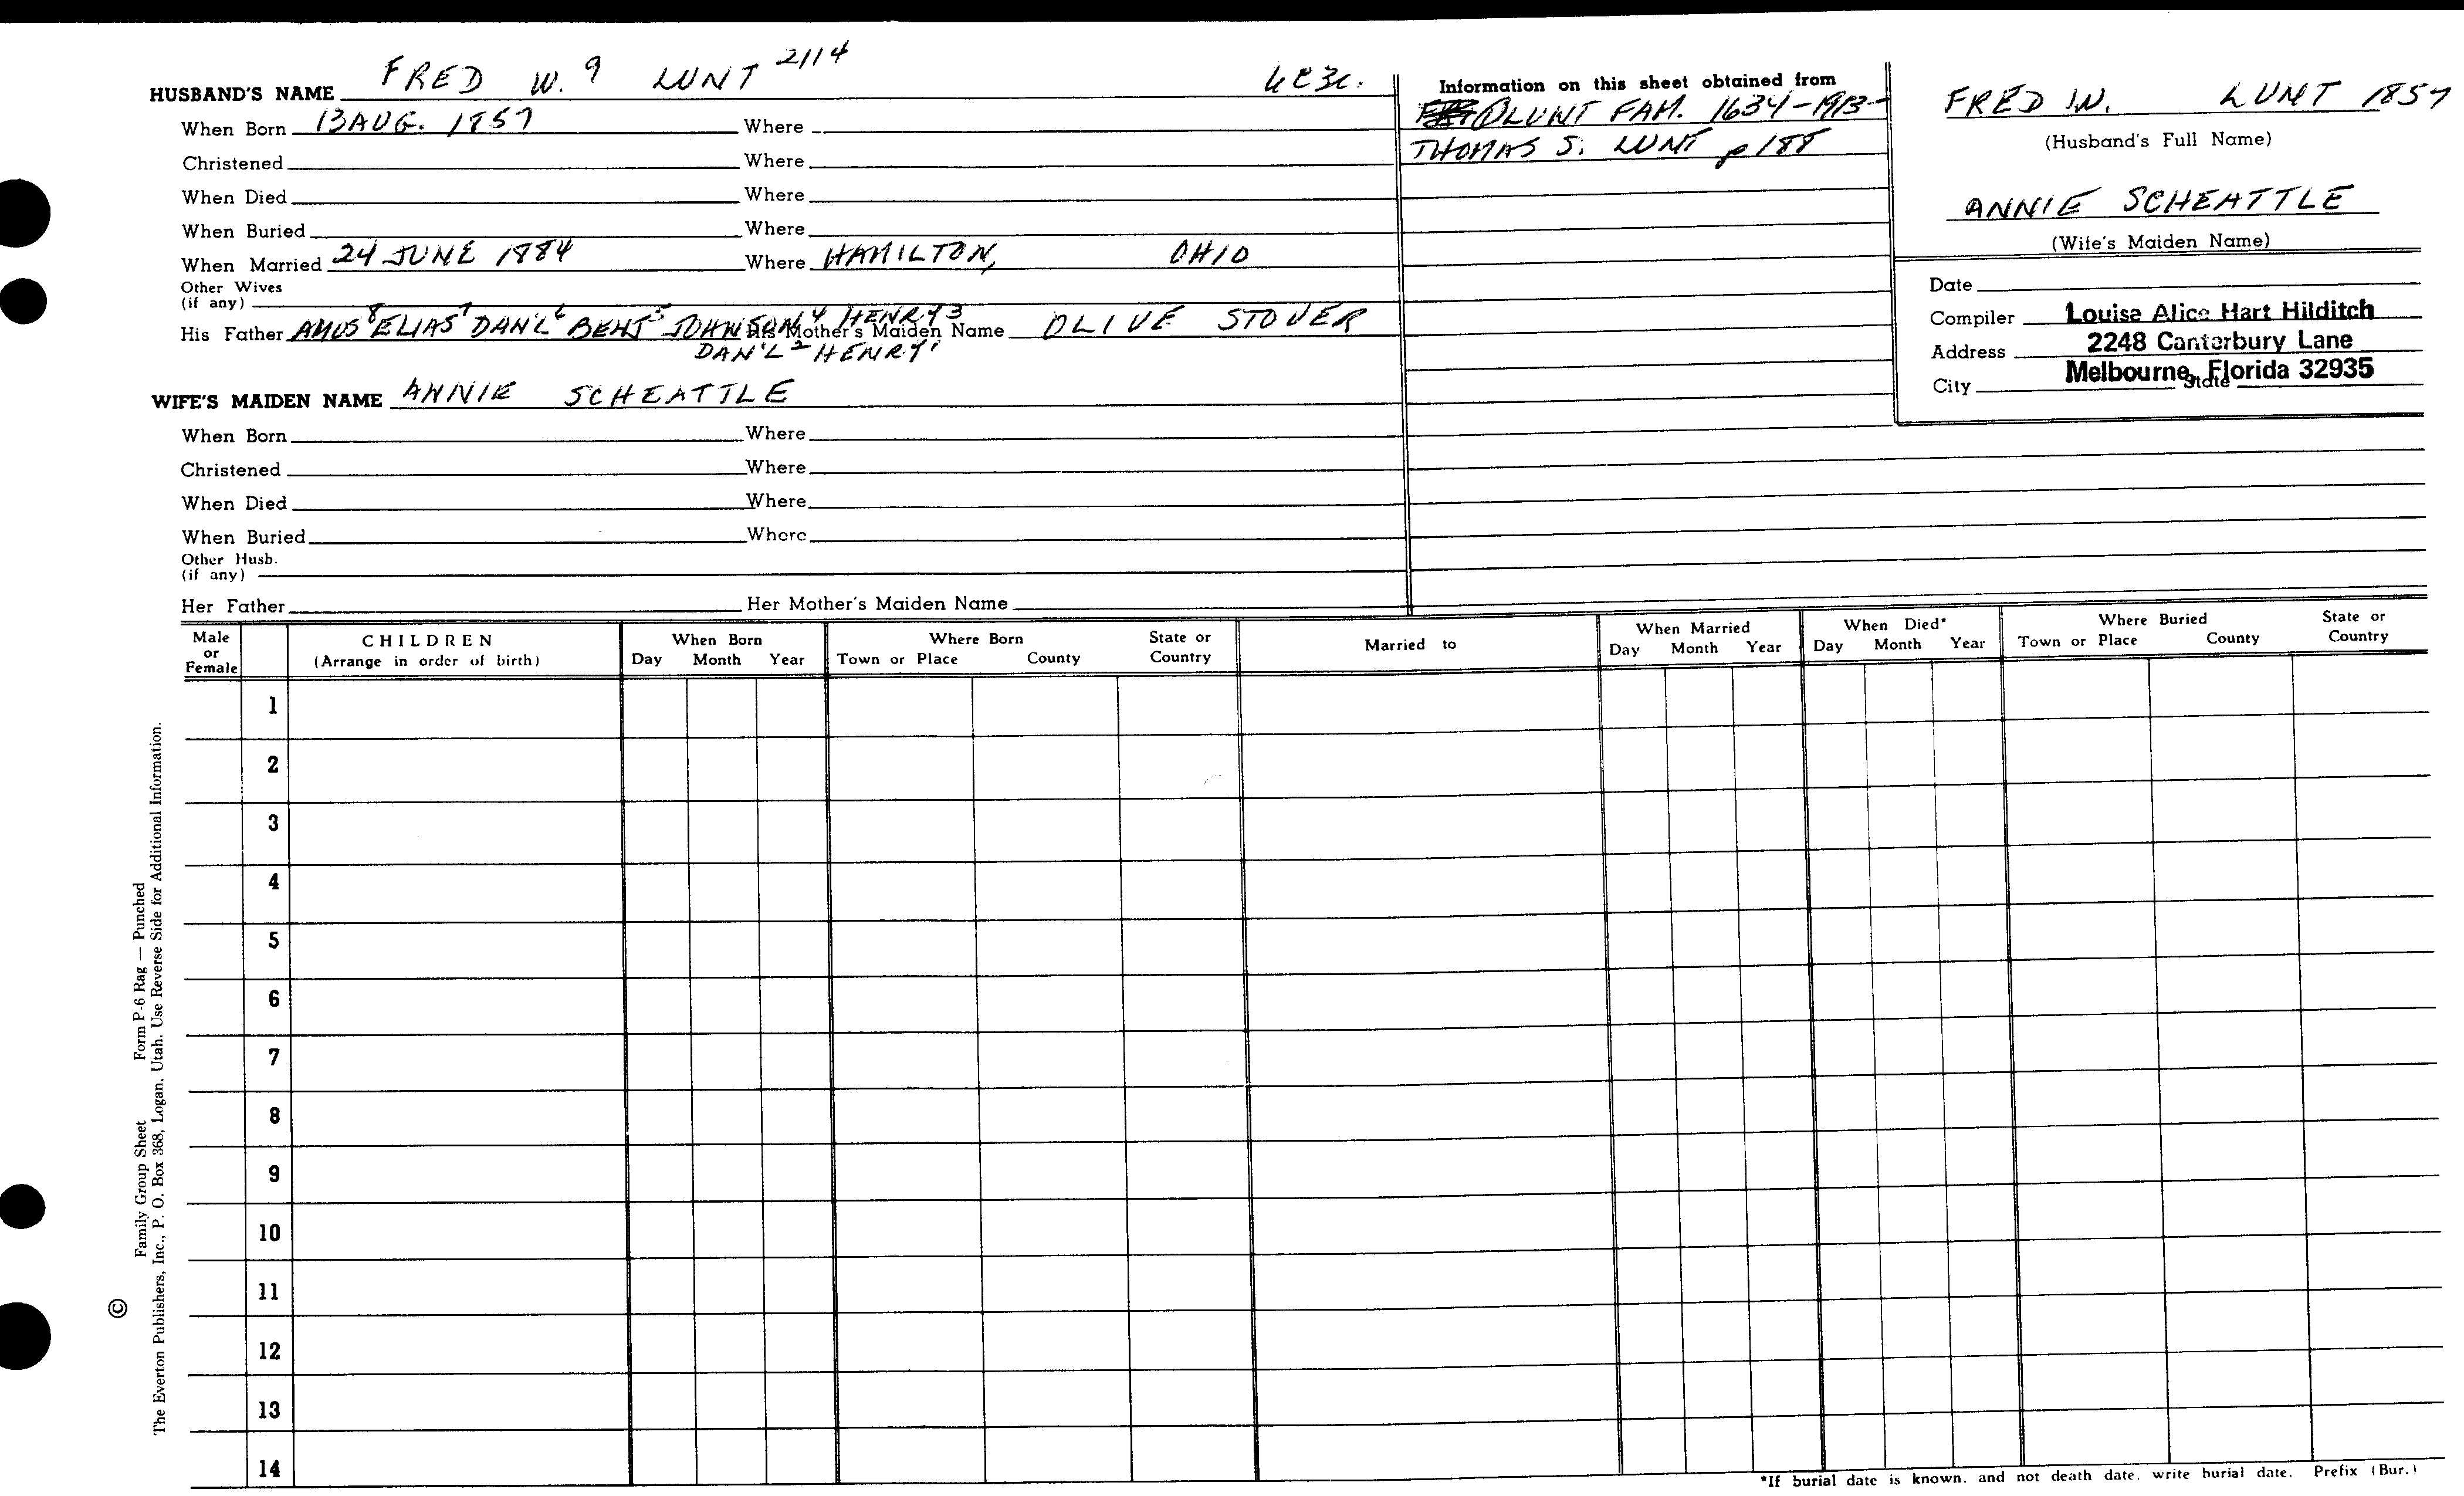 HUSBAND'S NAME FRED W. 9 LUNT 2114
When Born 13 AUG. 1857 Where
Christened Where
When Died Where
When Buried Where
When Married 24 JUNE 1884 Where HAMILTON, OHIO
Other Wives
(if any)
His Father AMOS 8 ELIAS 7 DAN'L 6 BENJ 5 JOHNSON 4 HENRY 3 His Mother's Maiden Name OLIVE STOVER
DAN'L 2 HENRY 1
WIFE'S MAIDEN NAME ANNIE SCHEATTLE
When Born Where
Christened Where
When Died Where
When Buried Where
Other Husb.
(if any)
Her Father Her Mother's Maiden Name
Information on this sheet obtained from
LUNT FAM. 1634-1913-
THOMAS S. LUNT p 188
FRED W. LUNT 1857
(Husband's Full Name)
ANNIE SCHEATTLE
(Wife's Maiden Name)
Date
Compiler Louise Alice Hart Hilditch
Address 2248 Canterbury Lane
City Melbourne, Florida 32935 State
Male or Female
CHILDREN
(Arrange in order of birth)
When Born
Day Month Year
Where Born
Town or Place County State or Country
Married to
When Married
Day Month Year
When Died*
Day Month Year
Where Buried
Town or Place County State or Country
1
2
3
4
5
6
7
8
9
10
11
12
13
14
*If burial date is known, and not death date, write burial date. Prefix (Bur.)
Family Group Sheet Form P-6 Rag — Punched
© The Everton Publishers, Inc., P. O. Box 368, Logan, Utah. Use Reverse Side for Additional Information.